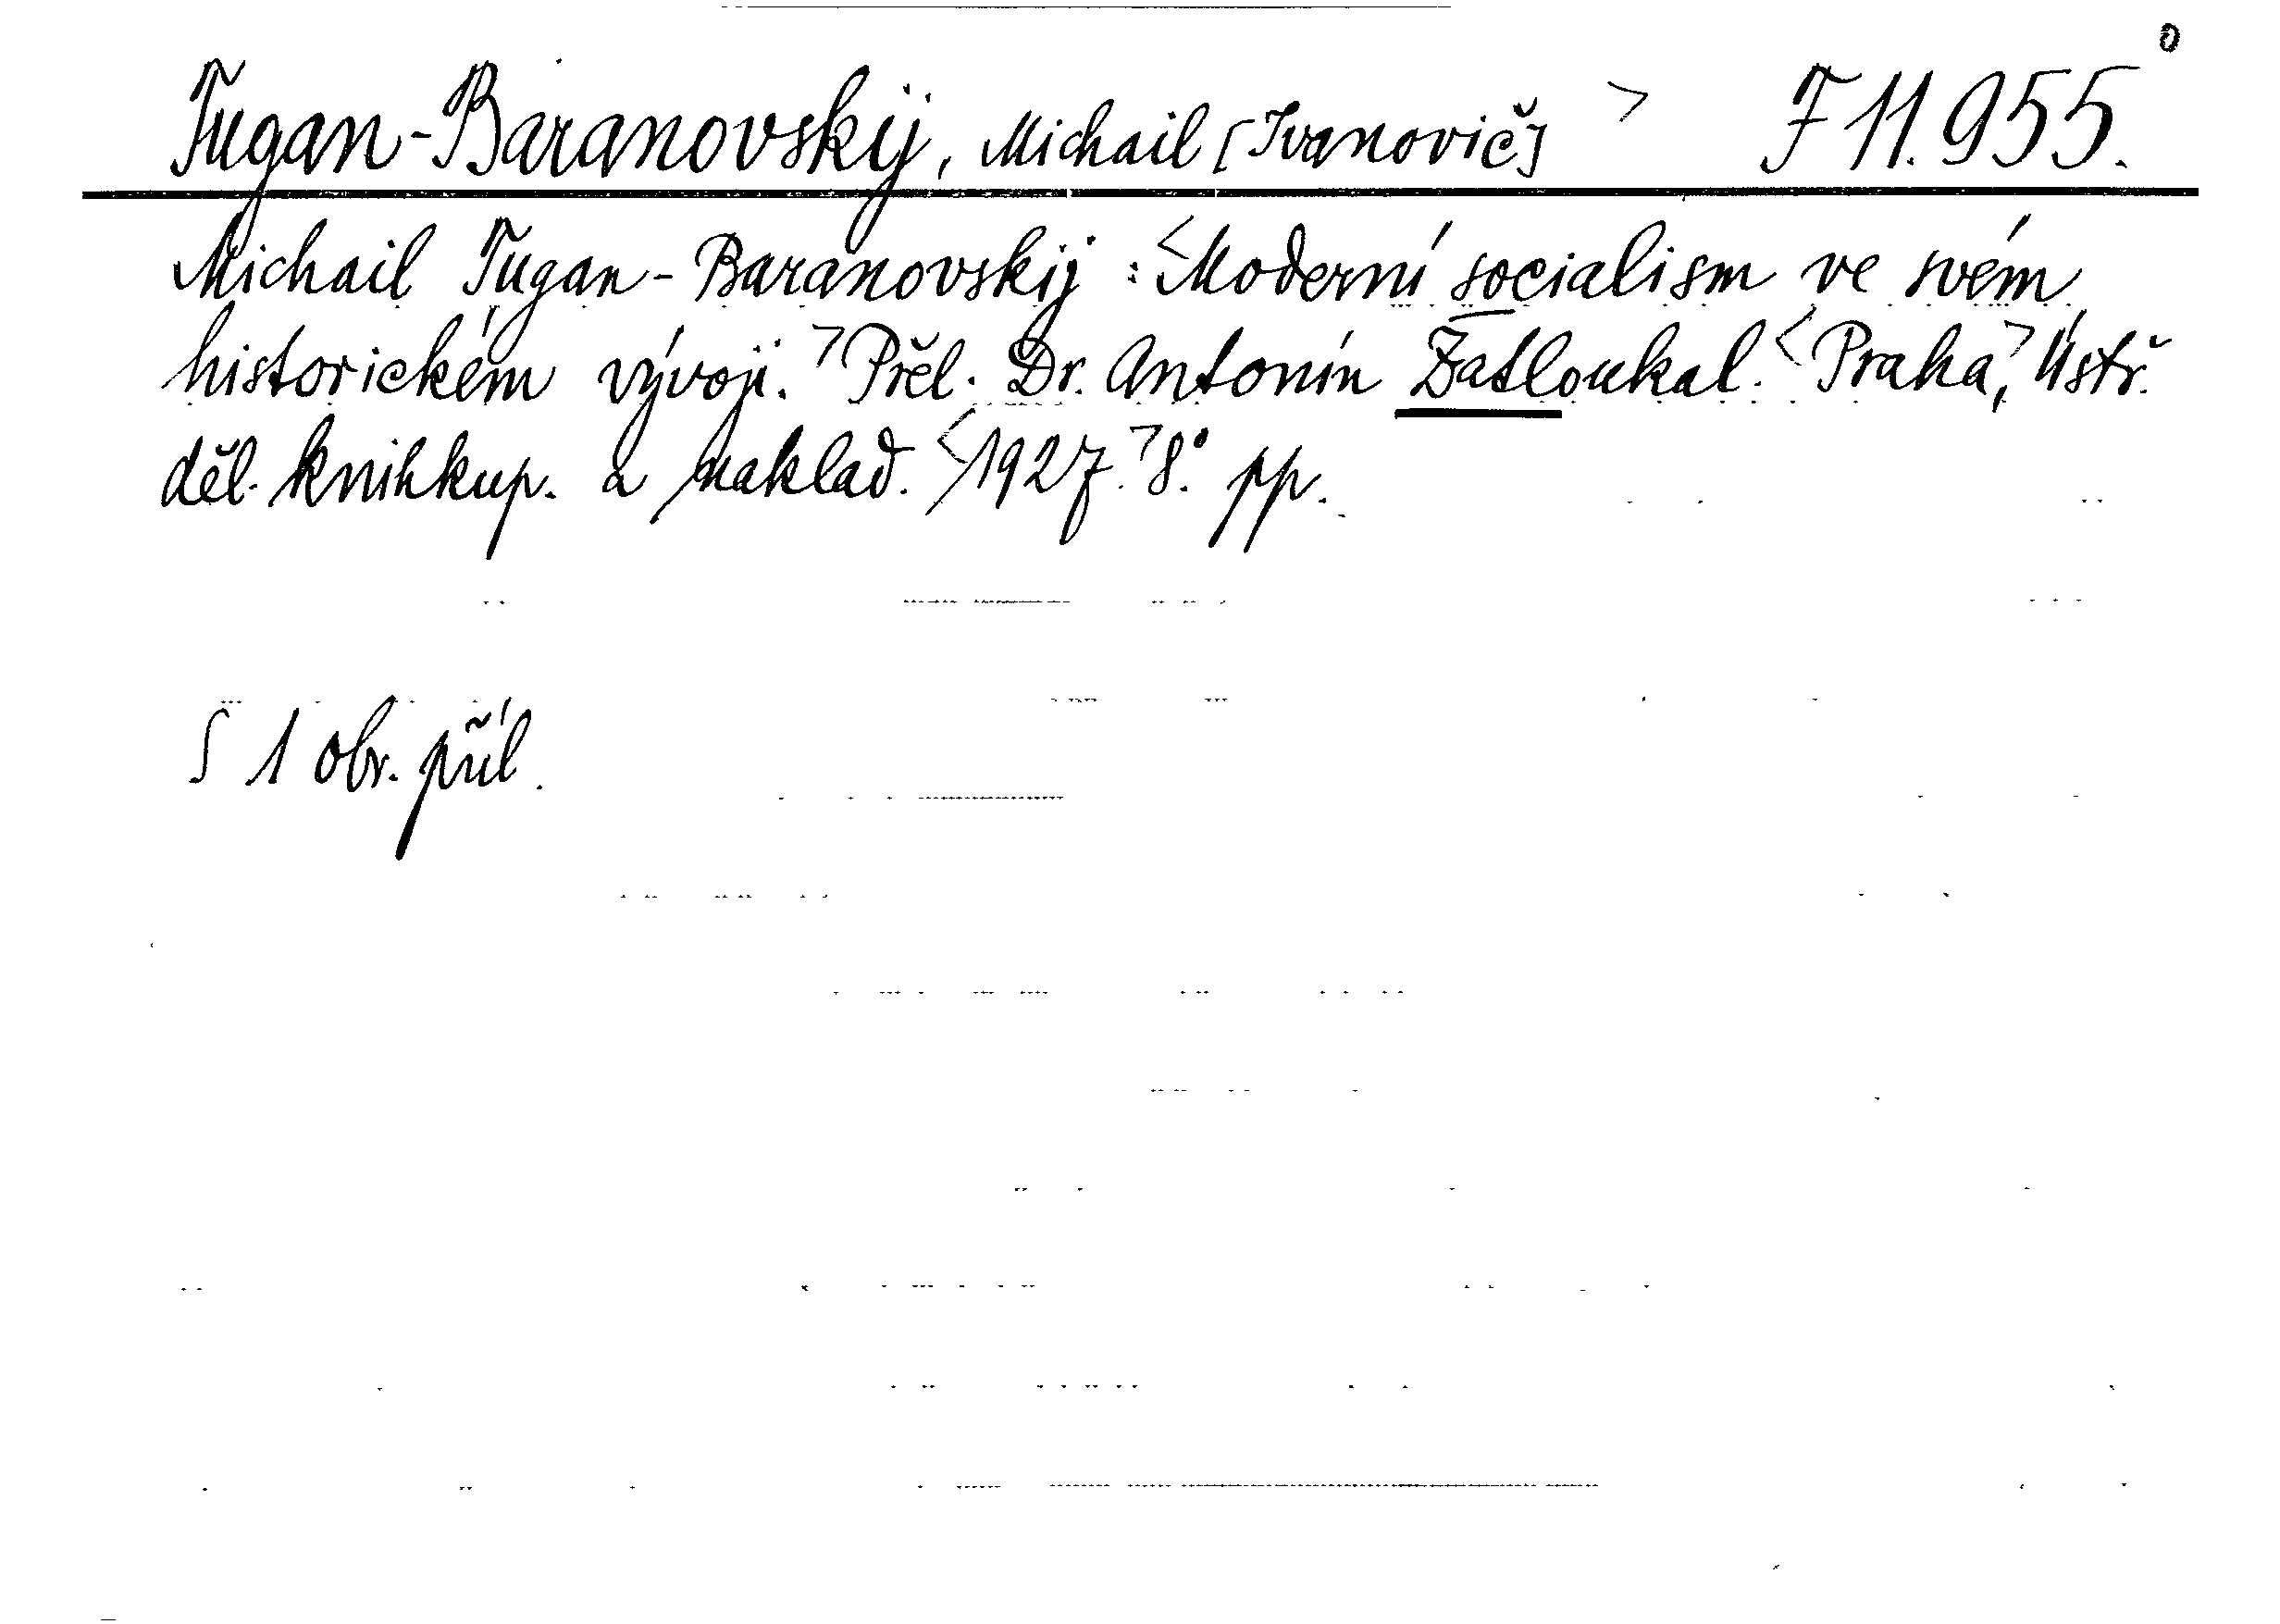 Tugan-Baranovskij, Michail [Ivanovič] > F 11.955.
Michail Tugan-Baranovskij : <Moderní socialism ve svém
historickém vývoji.> Přel. Dr. Antonín Zatloukal. <Praha,> Ústř.
děl. knihkup. a naklad. <1927.> 8.° pp.
S 1 obr. příl.